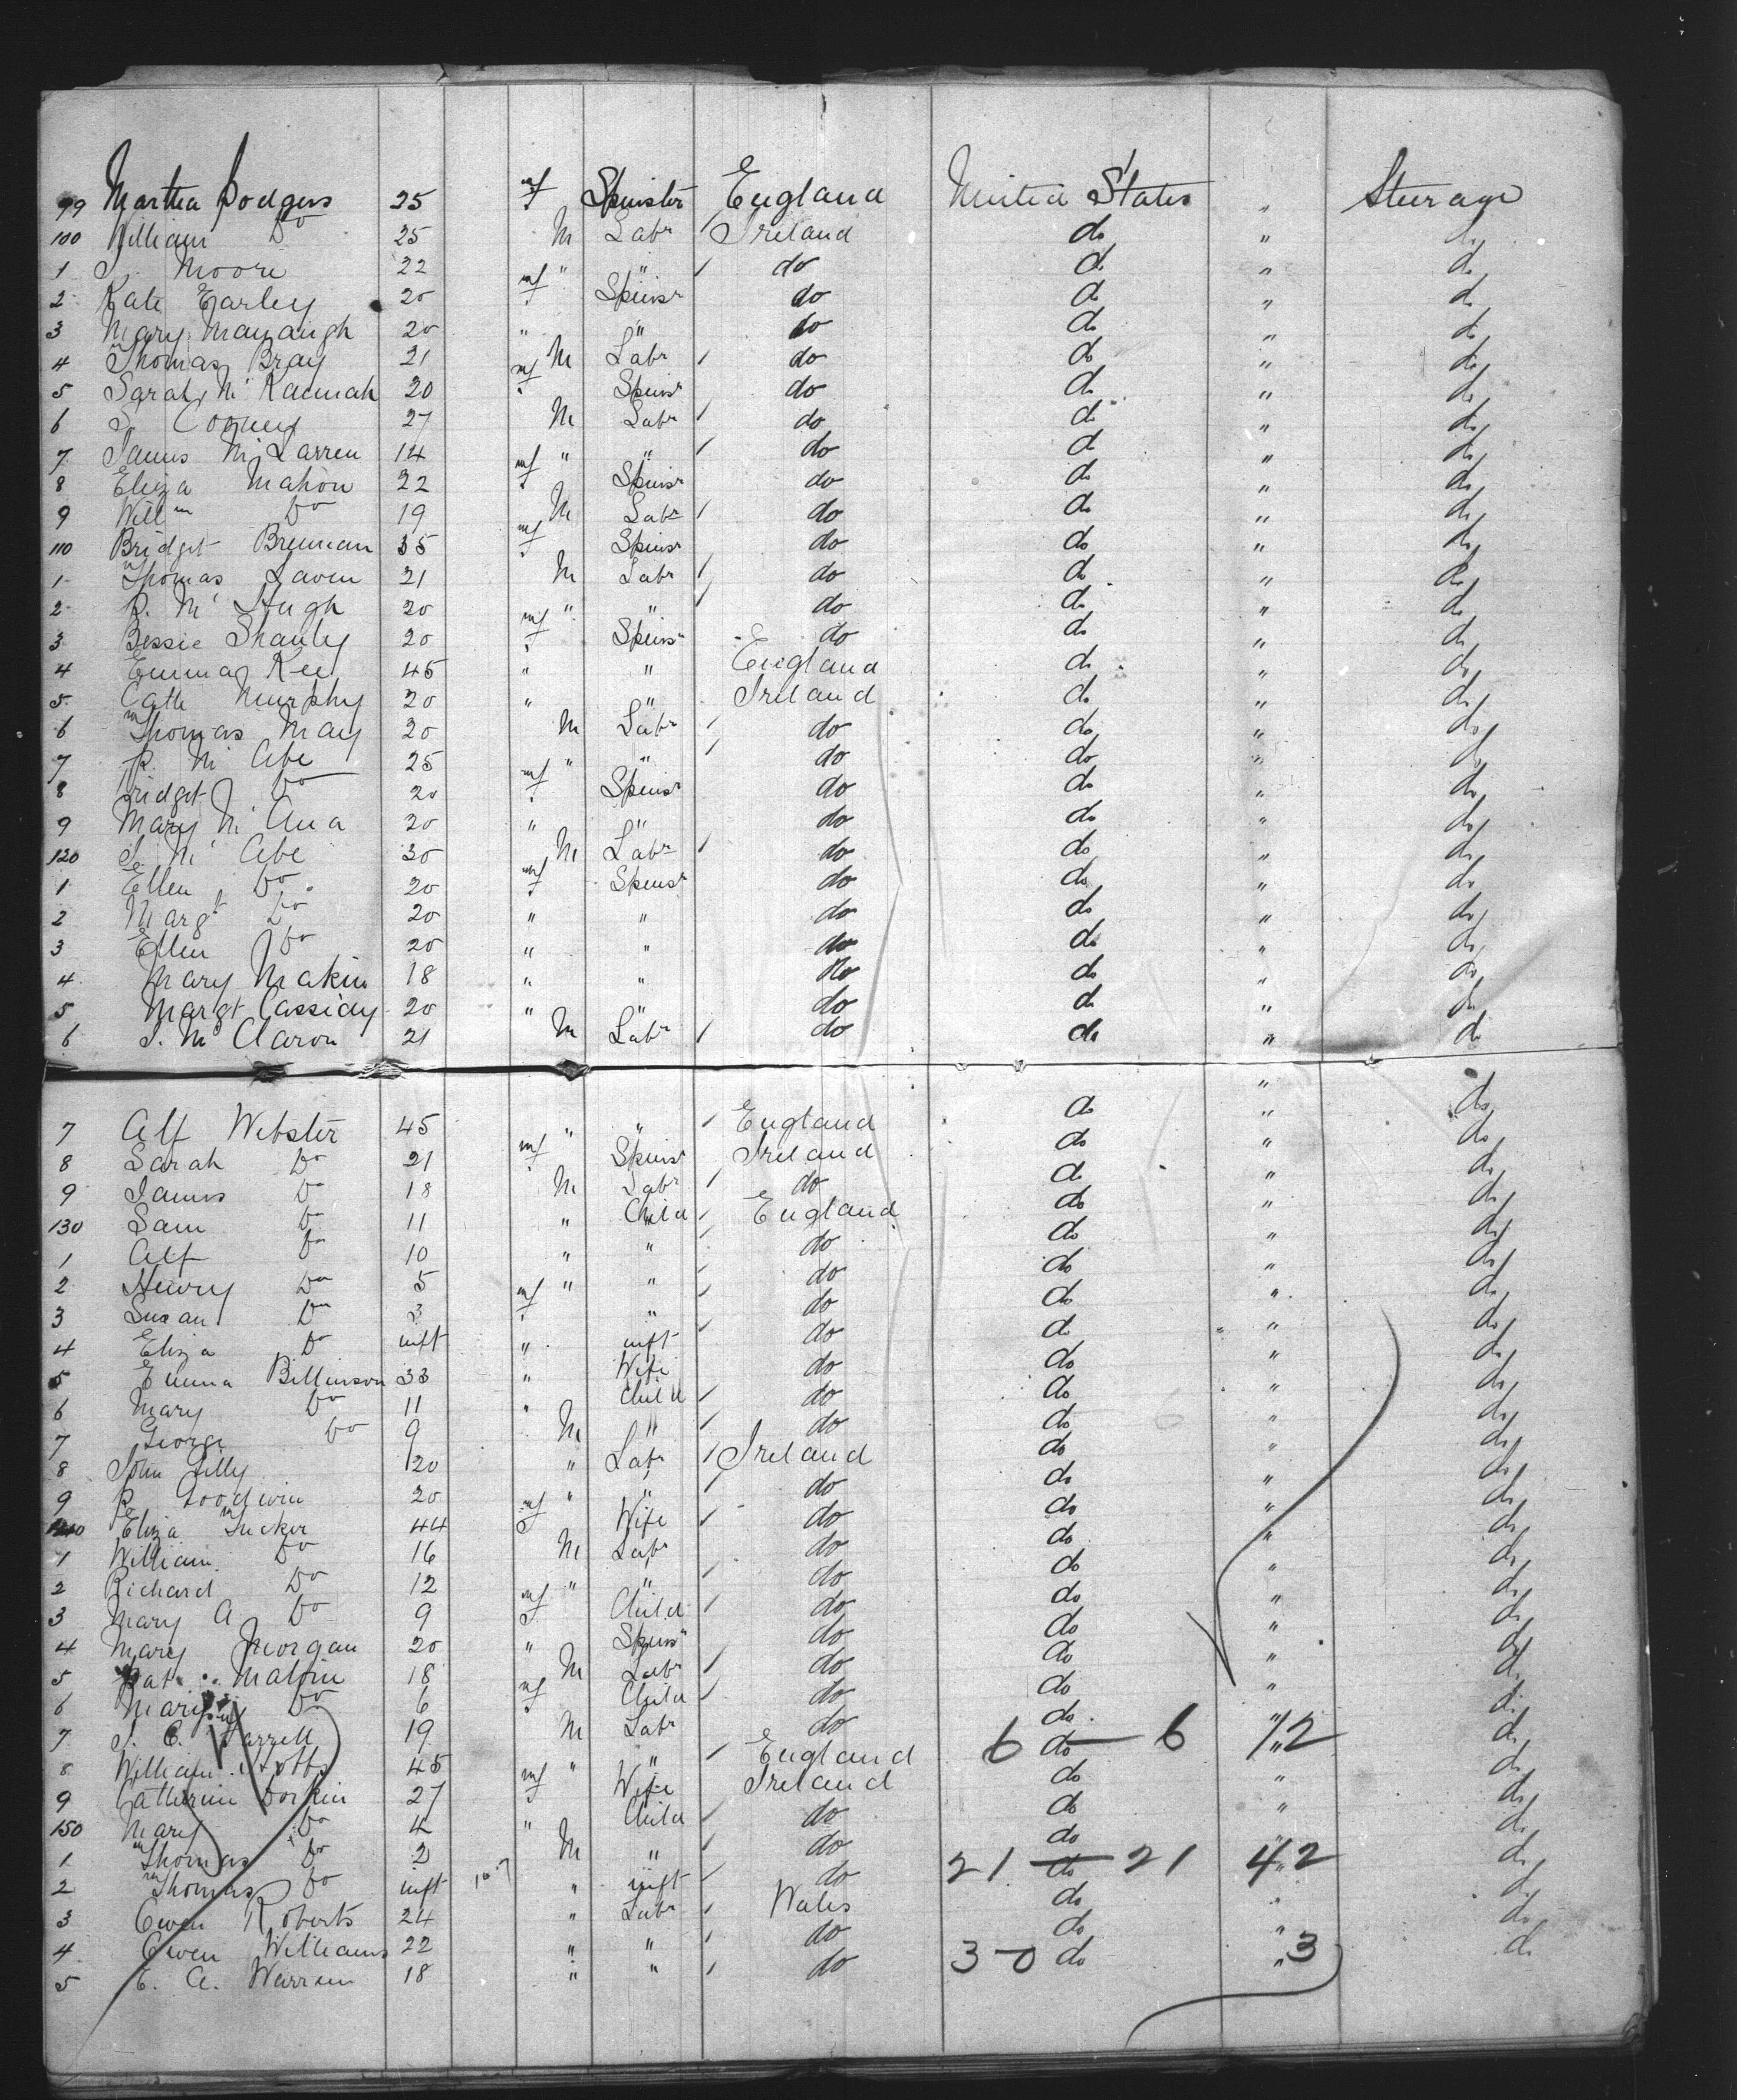 99 Martha Dodgers 25 f Spinster England United States " Steerage
100 William Do 25 M Labr Ireland do " do
1 J. Moore 22 " " do do " do
2 Kate Earley 20 f Spinsr do do " do
3 Mary Mavaugh 20 " " do do " do
4 Thomas Bray 21 M Labr do do " do
5 Sarah Mc Kaennah 20 f Spinsr do do " do
6 27 M Labr do do " do
7 James Mc Larren 14 " " do do " do
8 Eliza Mahon 22 f Spinsr do do " do
9 Willm Do 19 M Labr do do " do
110 Bridget Brennan 35 f Spinsr do do " do
1 Thomas Laven 21 M Labr do do " do
2 P. Mc Hugh 20 " " do do " do
3 Bessie Shanly 20 f Spinsr do do " do
4 Emma Kee 45 " " England do " do
5 Cath Murphy 20 " " Ireland do " do
6 Thomas May 20 M Labr do do " do
7 P. Mc Abe 25 " " do do " do
8 Bridget Do 20 f Spinsr do do " do
9 Mary Mc Ana 20 " " do do " do
120 J. Mc Abe 30 M Labr do do " do
1 Ellen Do 20 f Spinsr do do " do
2 Margt Do 20 " " do do " do
3 Ellen Do 20 " " do do " do
4 Mary Makin 18 " " do do " do
5 Margt Cassidy 20 " " do do " do
6 J. Mc Claron 21 M Labr do do " do
7 Alf Webster 45 " " England do " do
8 Sarah Do 21 f Spinsr Ireland do " do
9 James Do 18 M Labr do do " do
130 Sam Do 11 " Child England do " do
1 Alf Do 10 " " do do " do
2 Henry Do 5 " " do do " do
3 Susan Do 3 f " do do " do
4 Eliza Do inft " inft do do " do
5 Emma Billinson 33 " Wife do do " do
6 Mary Do 11 " Child do do " do
7 George Do 9 M " do do " do
8 John Lilly 20 " Labr Ireland do " do
9 R Goodwin 20 " " do do " do
140 Eliza Tucker 44 f Wife do do " do
1 William Do 16 M Labr do do " do
2 Richard Do 12 " " do do " do
3 Mary A Do 9 f Child do do " do
4 Mary Morgan 20 " Spinsr do do " do
5 Pat Malone 18 M Labr do do " do
6 Mary Do 6 f Child do do " do
7 J. C. Farrell 19 M Labr do do " do
8 William Stotts 45 " " England 6 do 6 12 do
9 Catherine Dorkin 27 f Wife Ireland do " do
150 Mary Do 4 " Child do do " do
1 Thomas Do 2 M " do do " do
2 Thomas Do inft " inft do 21 do 21 42 do
3 Owen Roberts 24 " Labr Wales do " do
4 Owen Williams 22 " " do do " do
5 E. A. Warren 18 " " do 3 - 0 do " 3 do